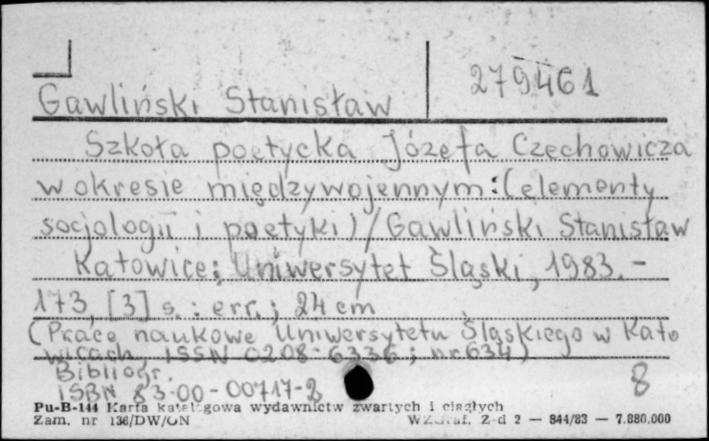 279461
Gawliński Stanisław
Szkoła poetycka Józefa Czechowicza
w okresie międzywojennym : (elementy
socjologii i poetyki) / Gawliński Stanisław
Katowice : Uniwersytet Śląski, 1983. -
173, [3] s. : err. ; 24 cm
(Prace naukowe Uniwersytetu Śląskiego w Kato
wicach, ISSN 0208-6336 ; nr 634)
Bibliogr.
ISBN 83-00-00717-2
8
Pu-B-144 Karta katalogowa wydawnictw zwartych i ciągłych
Zam. nr 136/DW/ON WZGraf. Z-d 2 — 844/83 — 7.880.000